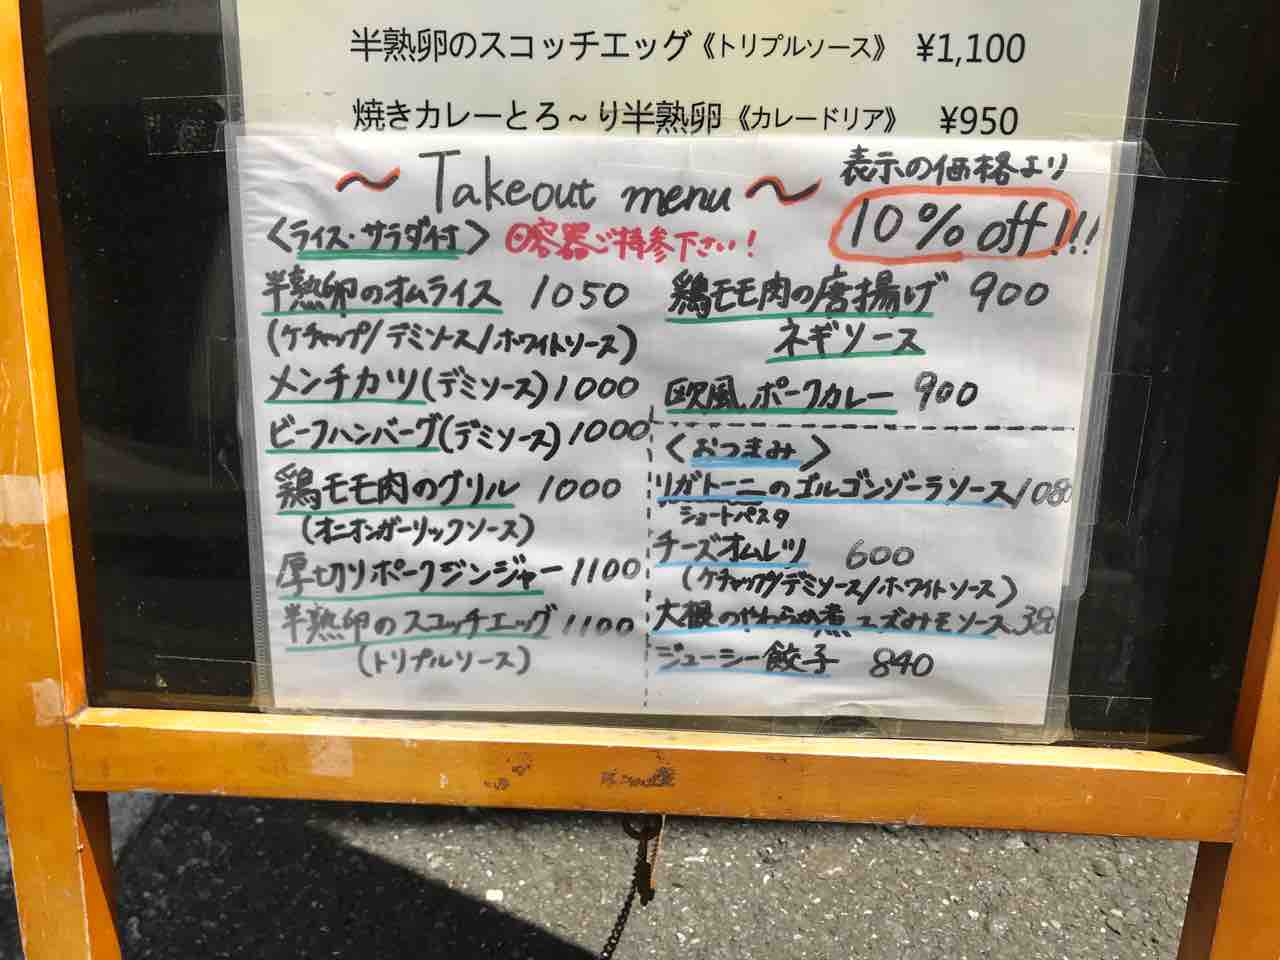 半熟卵のスコッチエッグ《トリプルソース》 ¥1,100
焼きカレーとろ～り半熟卵《カレードリア》 ¥950
～Takeout menu～
表示の価格より
10% off!!!
〈ライス・サラダ付〉
容器ご持参下さい!
半熟卵のオムライス 1050
(ケチャップ/デミソース/ホワイトソース)
メンチカツ(デミソース)1000
ビーフハンバーグ(デミソース)1000
鶏モモ肉のグリル 1000
(オニオンガーリックソース)
厚切りポークジンジャー 1100
半熟卵のスコッチエッグ 1100
(トリプルソース)
鶏モモ肉の唐揚げ 900
ネギソース
欧風ポークカレー 900
〈おつまみ〉
リガトーニのゴルゴンゾーラソース 1080
ショートパスタ
チーズオムレツ 600
(ケチャップ/デミソース/ホワイトソース)
大根のやわらか煮 エズみモソース
ジューシー餃子 840